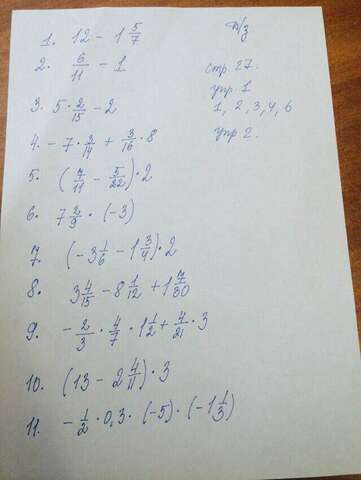 1. 12 - 1 5/7
2. 6/11 - 1
3. 5 · 2/15 - 2
4. - 7 · 3/14 + 3/16 · 8
5. (7/11 - 5/22) · 2
6. 7 2/9 · (-3)
7. (-3 1/6 - 1 3/4) · 2
8. 3 4/15 - 8 1/12 + 1 7/30
9. - 2/3 · 4/7 · 1 1/2 + 4/21 · 3
10. (13 - 2 4/11) · 3
11. - 1/2 · 0,3 · (-5) · (-1 1/3)
Д/з
стр. 27.
упр. 1
1, 2, 3, 4, 6
упр 2.